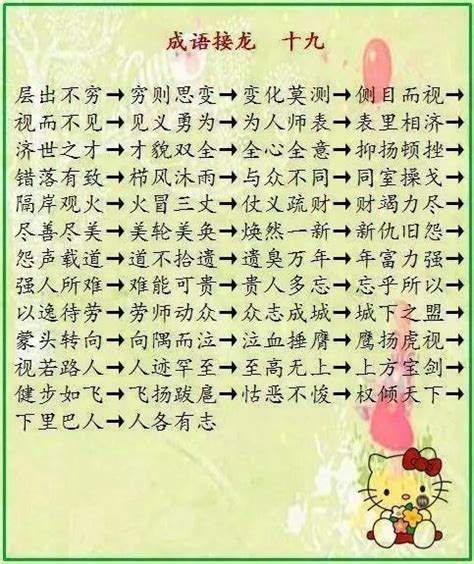 成语接龙 十九
层出不穷→穷则思变→变化莫测→侧目而视→
视而不见→见义勇为→为人师表→表里相济→
济世之才→才貌双全→全心全意→抑扬顿挫→
错落有致→栉风沐雨→与众不同→同室操戈→
隔岸观火→火冒三丈→仗义疏财→财竭力尽→
尽善尽美→美轮美奂→焕然一新→新仇旧怨→
怨声载道→道不拾遗→遗臭万年→年富力强→
强人所难→难能可贵→贵人多忘→忘乎所以→
以逸待劳→劳师动众→众志成城→城下之盟→
蒙头转向→向隅而泣→泣血捶膺→鹰扬虎视→
视若路人→人迹罕至→至高无上→上方宝剑→
健步如飞→飞扬跋扈→怙恶不悛→权倾天下→
下里巴人→人各有志